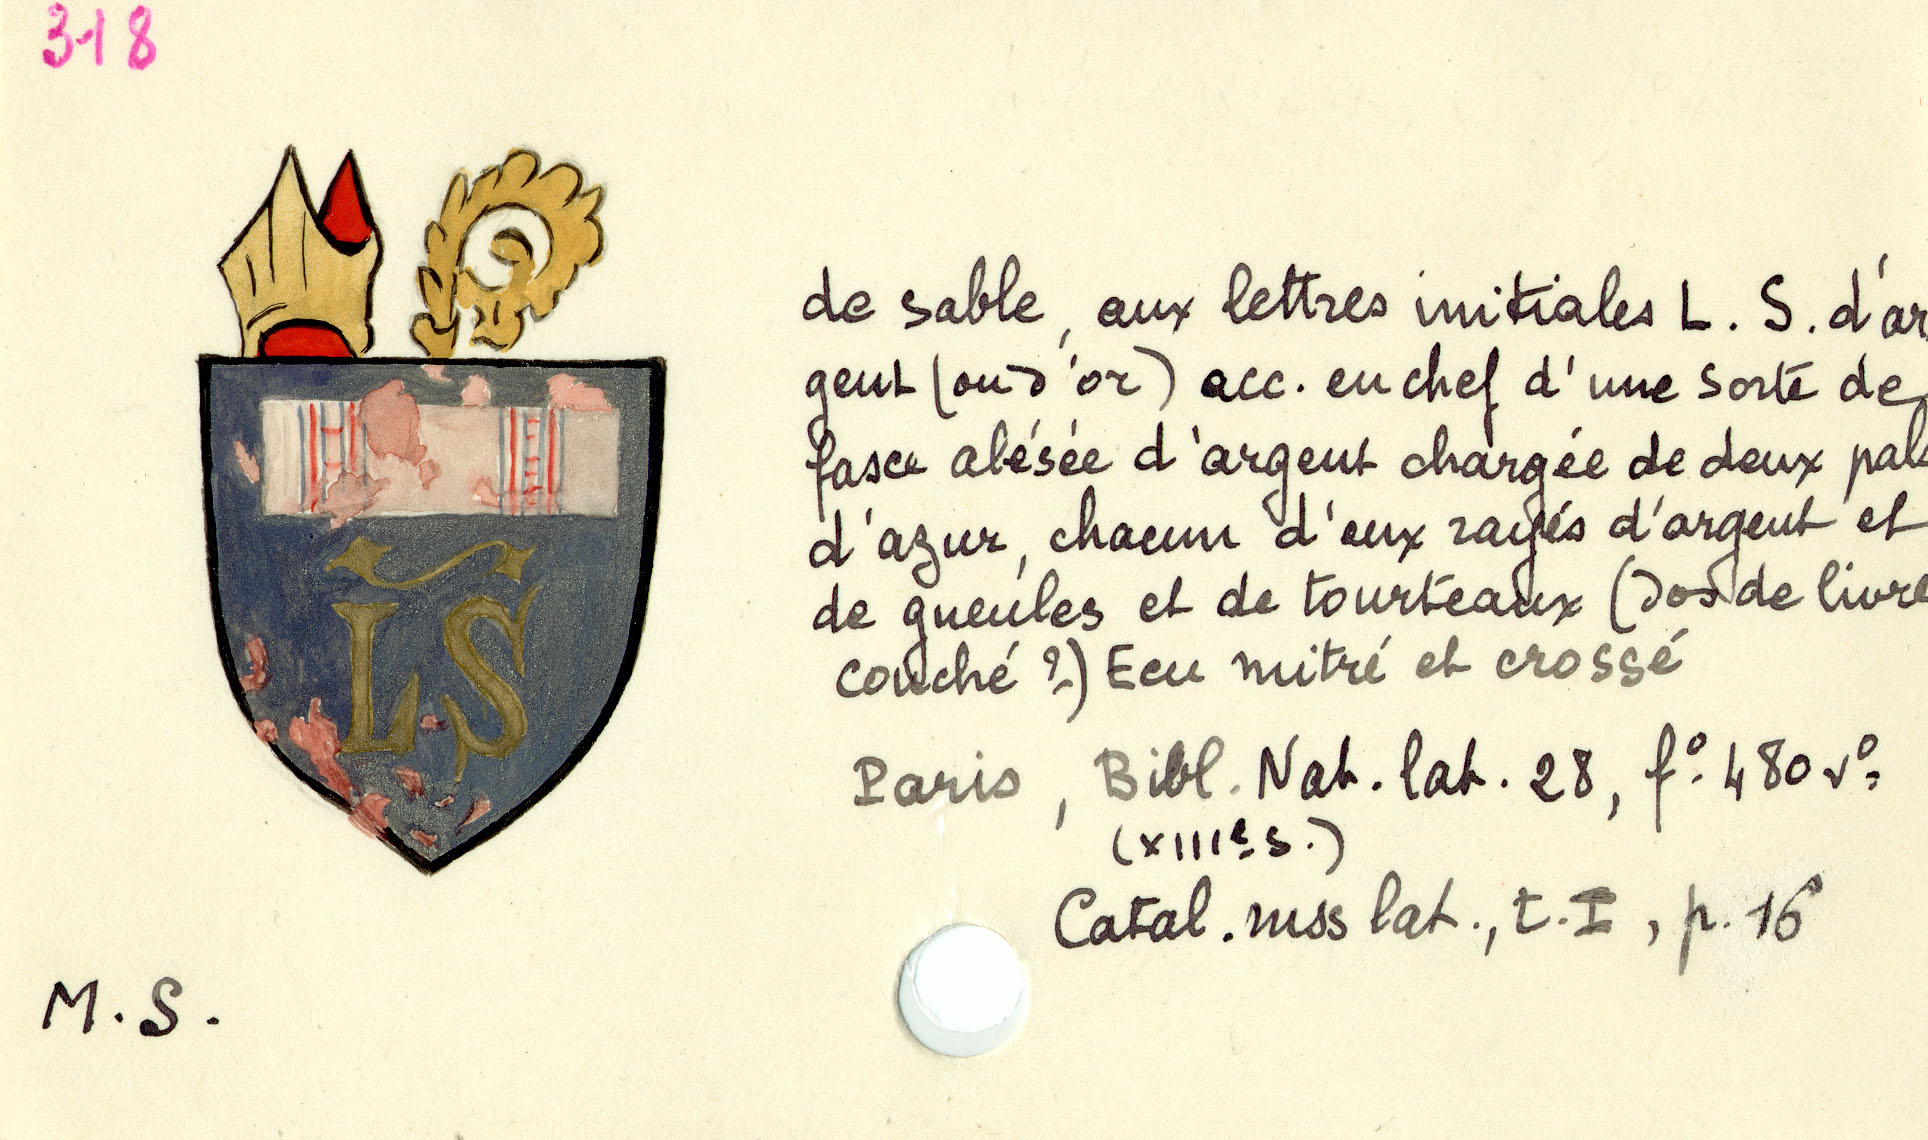 318
LS
de sable, aux lettres initiales L. S. d'ar
gent (ou d'or) acc. en chef d'une sorte de
fasce alésée d'argent chargée de deux pals
d'azur, chacun d'eux rayés d'argent et
de gueules et de tourteaux (dos de livre
couché ?) Ecu mitré et crossé
Paris, Bibl. Nat. lat. 28, fº 480 vº
(XIIIe s.)
Catal. mss lat., t. I, p. 16
M. S.